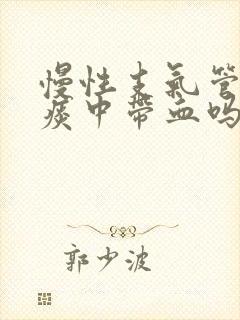 慢性支氣管
痰中帶血嗎
郭少波